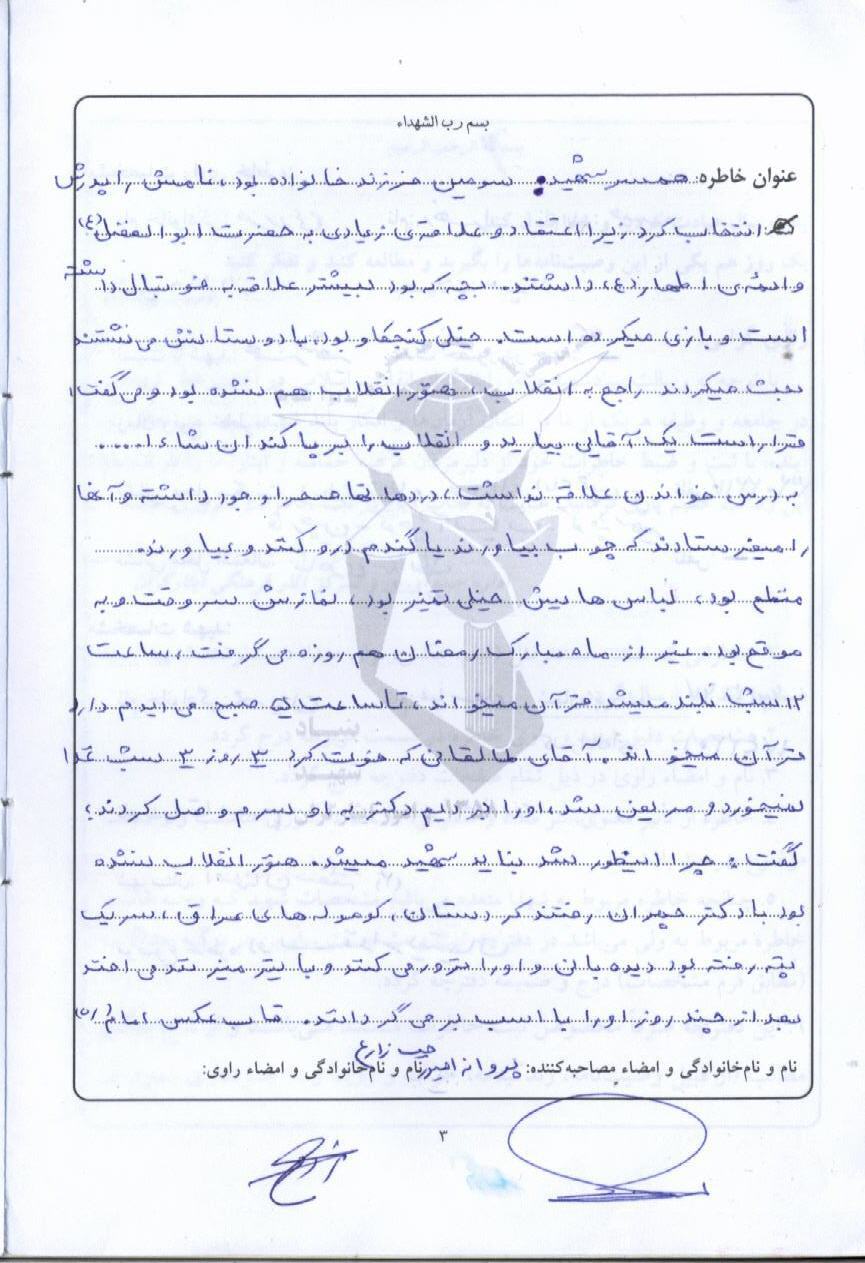 بسم رب الشهداء
عنوان خاطره: همسر شهید: سومین فرزند خانواده بود، نامش را پدرش
انتخاب کرد زیرا اعتقاد و علاقه‌ی زیادی به حضرت ابوالفضل (ع)
و ائمه‌ی اطهار (ع) داشتند. بچه که بود بیشتر علاقه به فوتبال داشته
است و بازی میکرده است. خیلی کنجکاو بود، با دوستانش می نشستند
بحث میکردند راجع به انقلاب، هنوز انقلاب هم نشده بود و می گفت:
قرار است یک آقایی بیاید و انقلاب را بر پا کند ان شاءا....
به درس خواندن علاقه نداشت، در دهاتها صحرا وجود داشته و آنها
را میفرستادند که چوب بیاورند یا گندم درو کنند و بیاورند.
منظم بود، لباس هایش خیلی تمیز بود، نمازش سر وقت و به
موقع بود. غیر از ماه مبارک رمضان هم روزه می گرفت، ساعت
۱۲ شب بلند میشد قرآن میخواند، تا ساعت ۵ صبح می دیدم دارد
قرآن میخواند. آقای طالقانی که فوت کرد ۳ روز ۳ شب غذا
نمیخورد و مریض شد، او را بردیم دکتر به او سرم وصل کردند،
گفت: چرا اینطور شد باید شهید میشد. هنوز انقلاب نشده
بود با دکتر چمران رفتند کردستان، کوموله های عراقی، سر یک
تپه رفته بود دیده بانی و او را ترور می کنند و با تیر میزنند می افتد
بعد از چند روز او را با اسب بر می گردانند. قاب عکس امام (ره)
نام و نام‌خانوادگی و امضاء مصاحبه‌کننده: پروانه امیر نام و نام‌خانوادگی و امضاء راوی:
۳